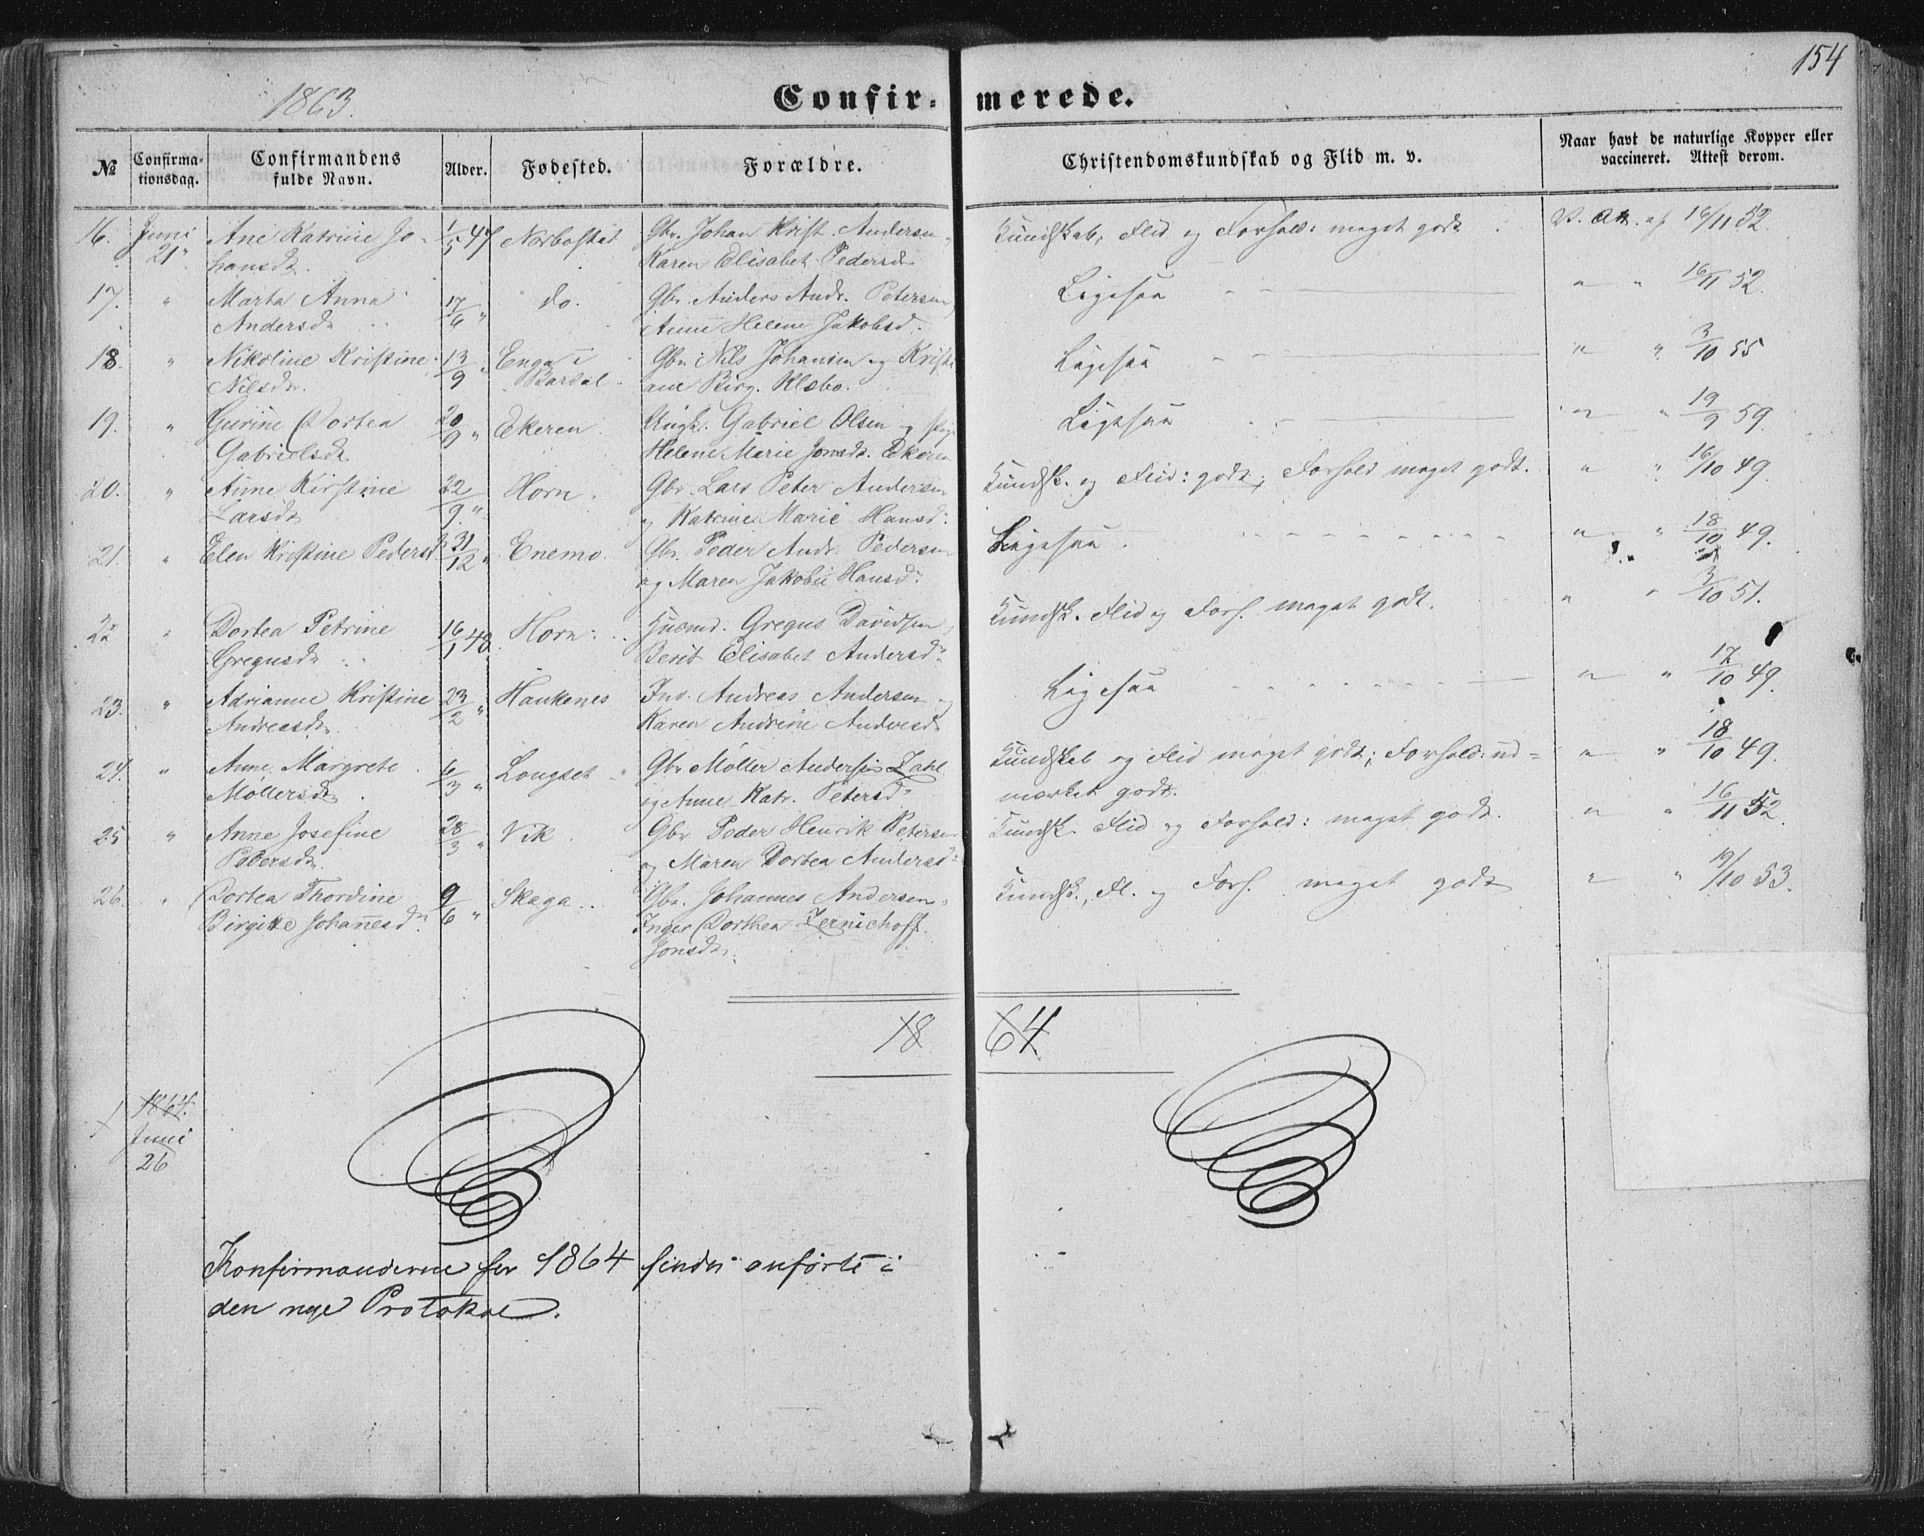 154
1863.
Confir= merede.
№
Confirma-
tionsdag.
Confirmandens
fulde Navn.
Alder.
Fødested.
Forældre.
Christendomskundskab og Flid m. v.
Naar havt de naturlige Kopper eller
vaccineret. Attest derom.
16. Juni Ane Katrine Jo- 1/5 47 Norbostat Gbr. Johan Krist. Andersen, Kundskab, Flid og Forhold: meget godt V. Att. af 16/11 52
21" hansdr. Karen Elisabet Pedersdr
17. " Marta Anna 17/6 " do. Gbr. Anders Andr. Petersen, Ligesaa " " 16/11 52.
Andersdr Anne Helene Jakobsd.
18 " Nikoline Kristine 13/9 " Enga i Gbr. Nils Johansen og Kristi- Ligesaa " " 3/10 55
Nilsdr. Bardal ane Birg. Klæbo.
19. " Gurine Dortea 20/9 " Ekeren. Ungk. Gabriel Olsen og Pige Ligesaa " " 19/9 59.
Gabrielsdr Helene Marie Jonsdr. Ekeren
20. " Anne Kirstine 22/9 " Horn. Gbr. Lars Peter Andersen Kundsk. og Flid: godt; Forhold meget godt. " " 16/10 49.
Larsdr og Katrine Marie Hansd:
21. " Elen Kristine Pedersd 31/12 " Enemo Gbr. Peder Andr. Pedersen Ligesaa. " " 18/10 49.
og Maren Jakobie Hansdr
22 " Dortea Petrine 16/1 48. Horn. Husmd. Gregus Davidsen, Kundsk. Flid og Forh. meget godt. " " 3/10 51.
Gregusdr Berit Elisabet Andersdr
23. " Adrianne Kristine 23/2 " Haukenes Ind. Andreas Andersen og Ligesaa " " 17/10 49.
Andreasdr. Karen Andrine Andersdr
24. " Anne Margrete 6/3 " Longset Gbr Möller Andersen Zahl Kundskab og Flid meget godt; Forhold: ud= " " 18/10 49.
Möllersdr og Anne Katr. Petersdr mærket godt.
25 " Anne Josefine 28/3 " Vik. Gbr. Peder Henrik Petersen Kundsk. Flid og Forhold: meget godt. " " 16/11 52.
Pedersdr og Maren Dortea Andersd:
26. " Dortea Thordine 9/6 " Skaga. Gbr. Johannes Andersen, Kundsk., Fl. og Forh. meget godt " " 19/10 53.
Birgitte Johanesdr Inger Dorthea Zernichoff
Jonsdr.
18 64
1 1864.
Juni
26
Konfirmanderne for 1864 findes anförte i
den nye Protokol.